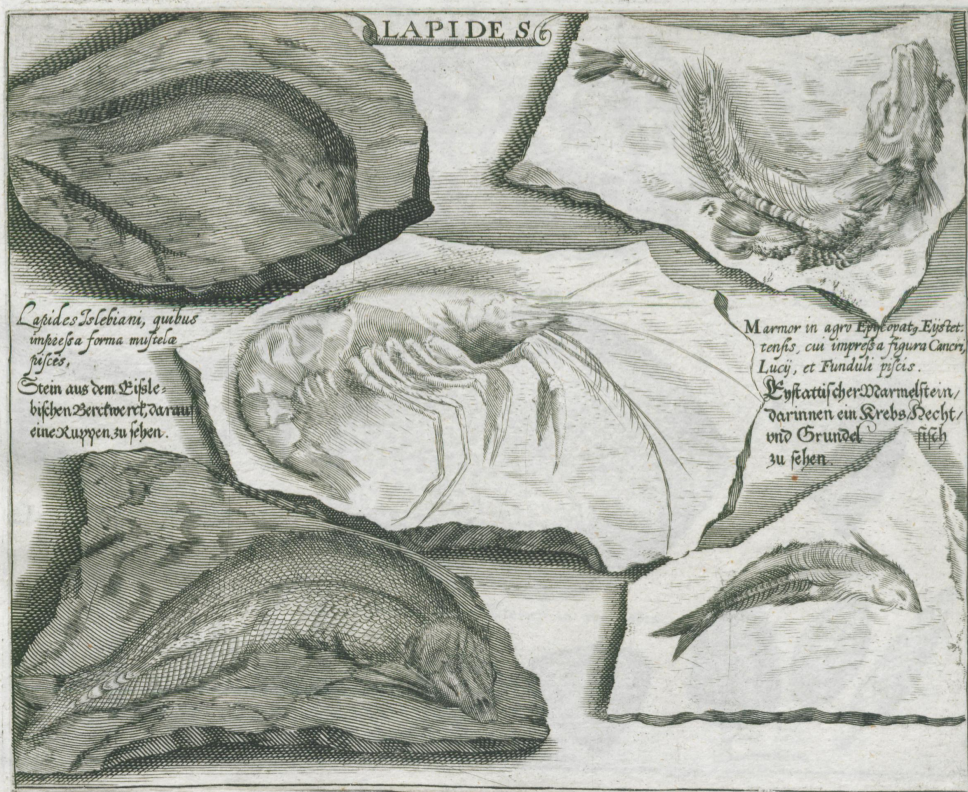 LAPIDES
Lapides Islebiani, quibus
impressa forma mustelæ
pisces,
Stein aus dem Eißle-
bischen Berckwerck, darau
eine Ruppen zu sehen.
Marmor in agro Episcopatq Eijstet-
tensis, cui impressa figura Cancri,
Lucij, et Funduli piscis.
Eystattischer Marmelstein/
darinnen ein Krebs/Hecht/
vnd Grundel fisch
zu sehen.